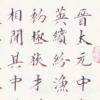 晉太元中
英繽紛漁
初極狹才
相聞其中